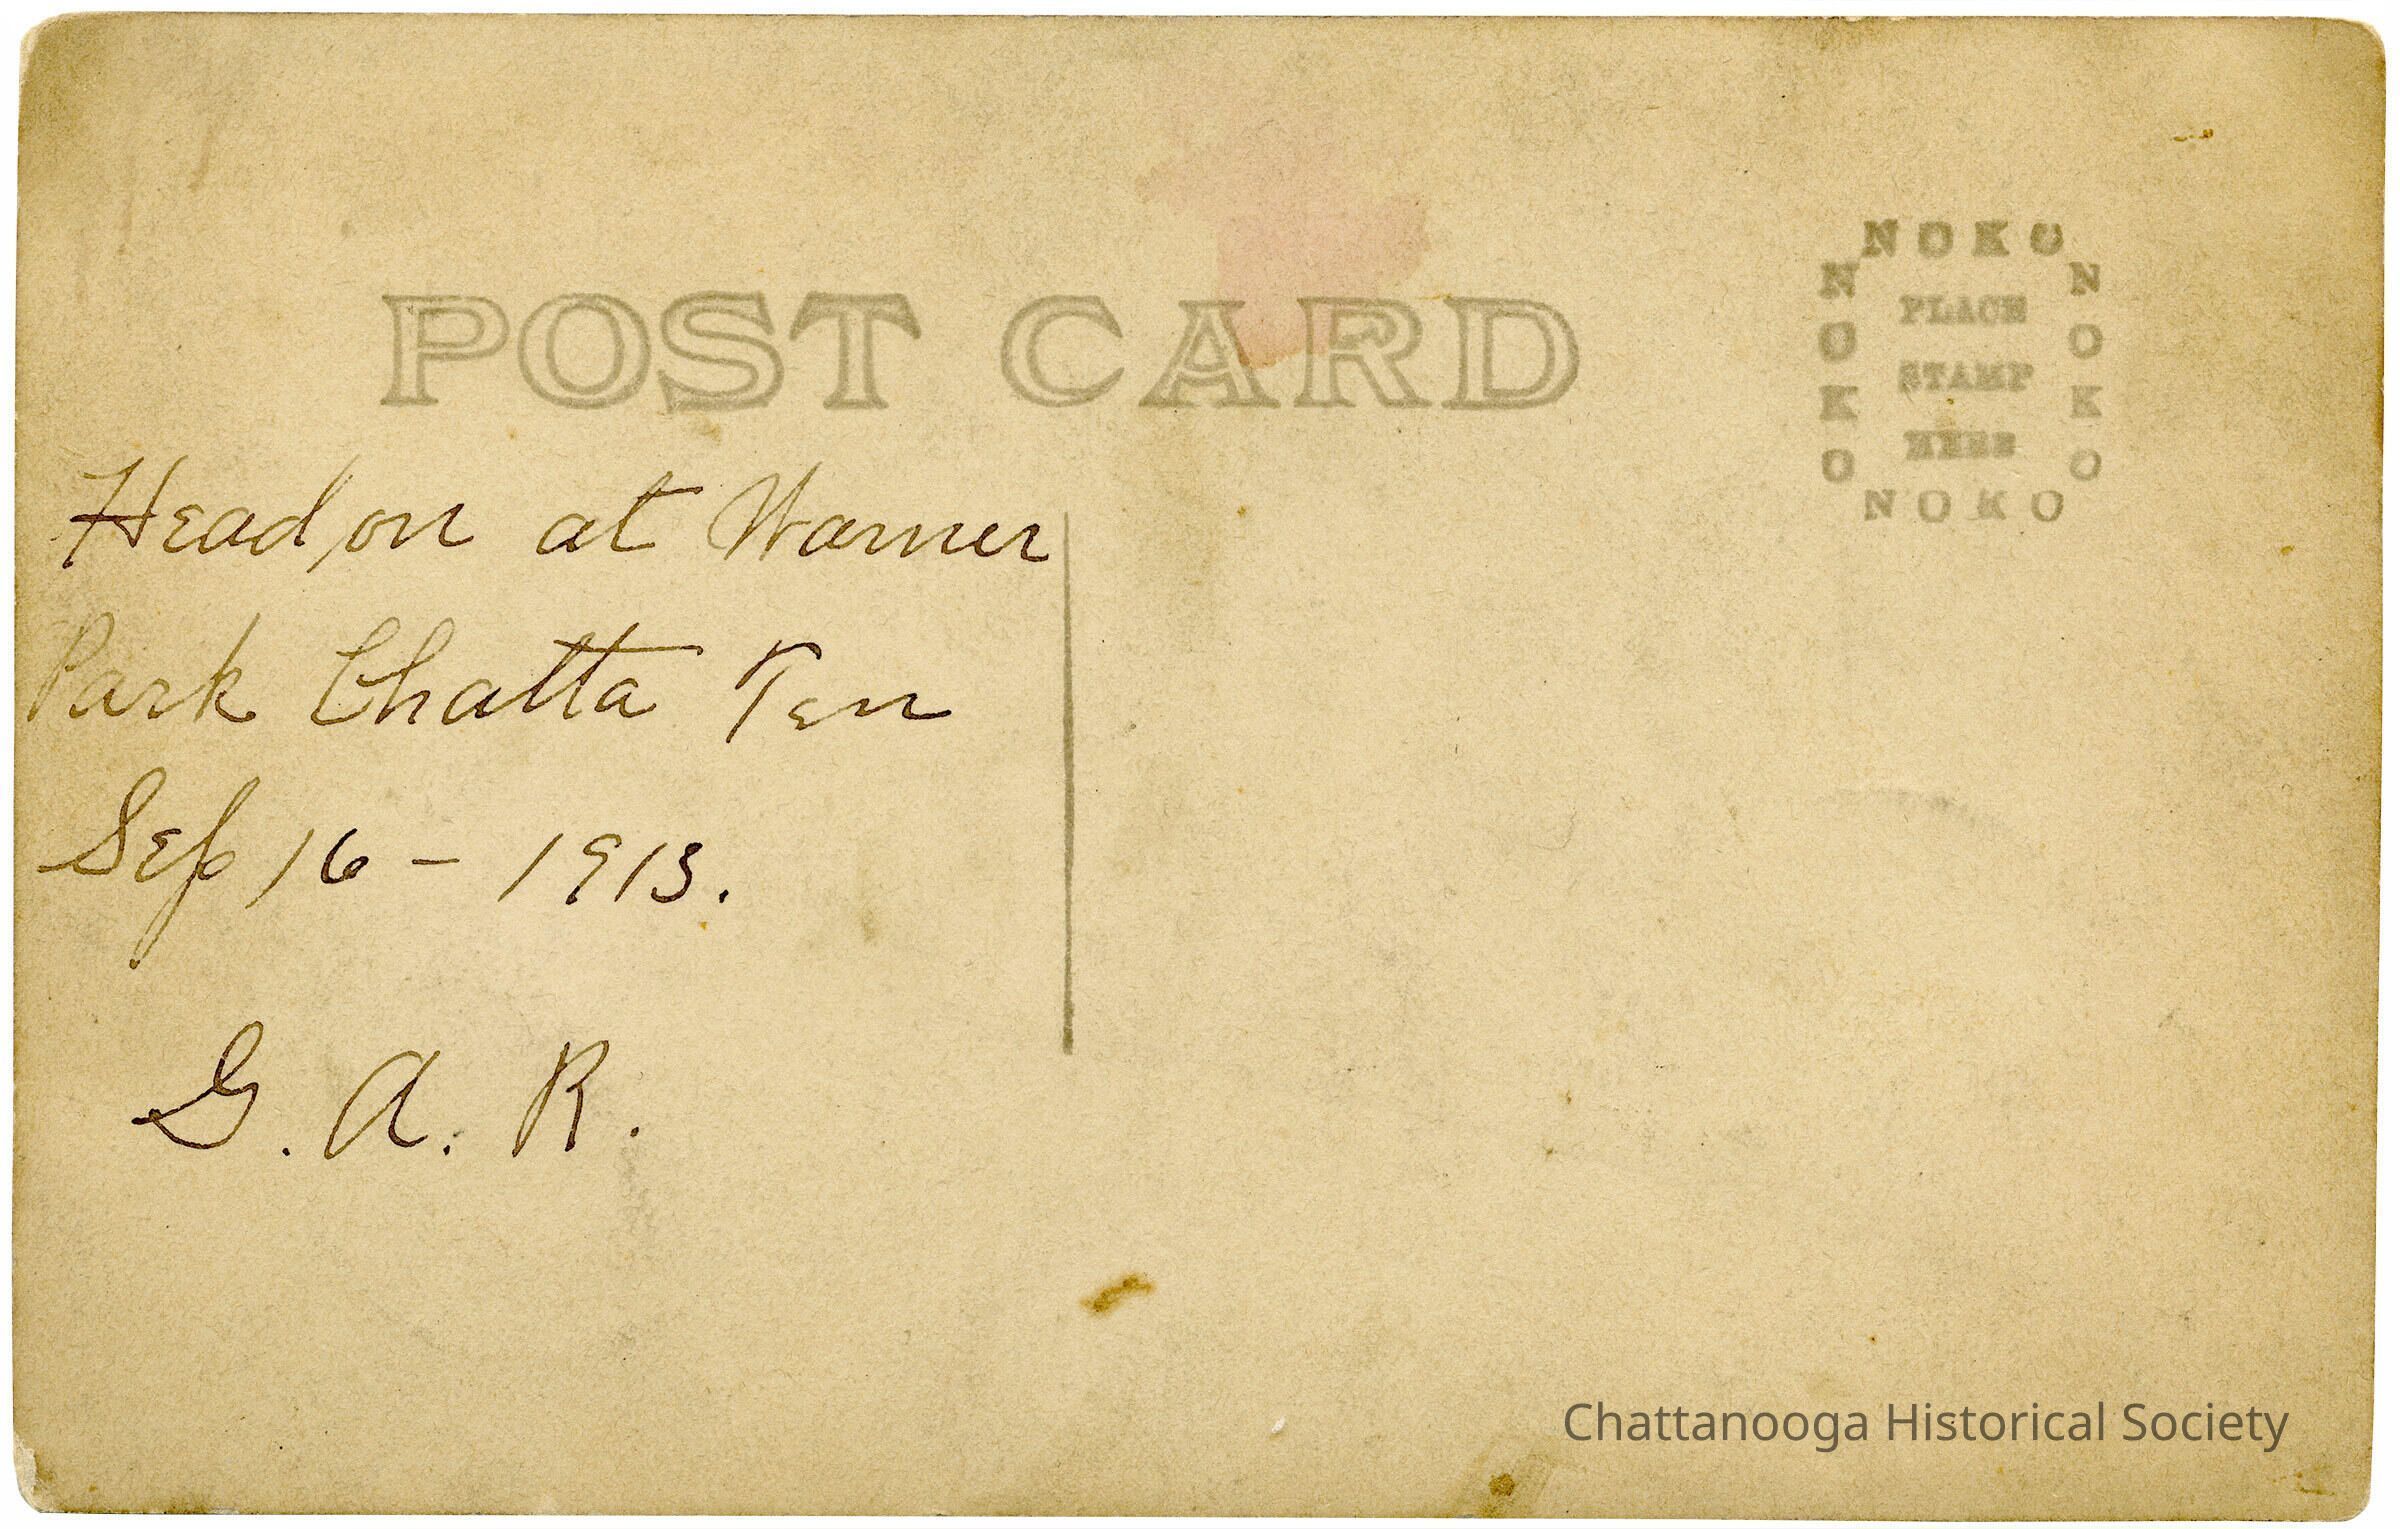 POST CARD
NOKO
NOKO
PLACE
STAMP
HERE
NOKO
NOKO
Head on at Warner
Park Chatta Ten
Sep 16 - 1913.
G. A. R.
Chattanooga Historical Society